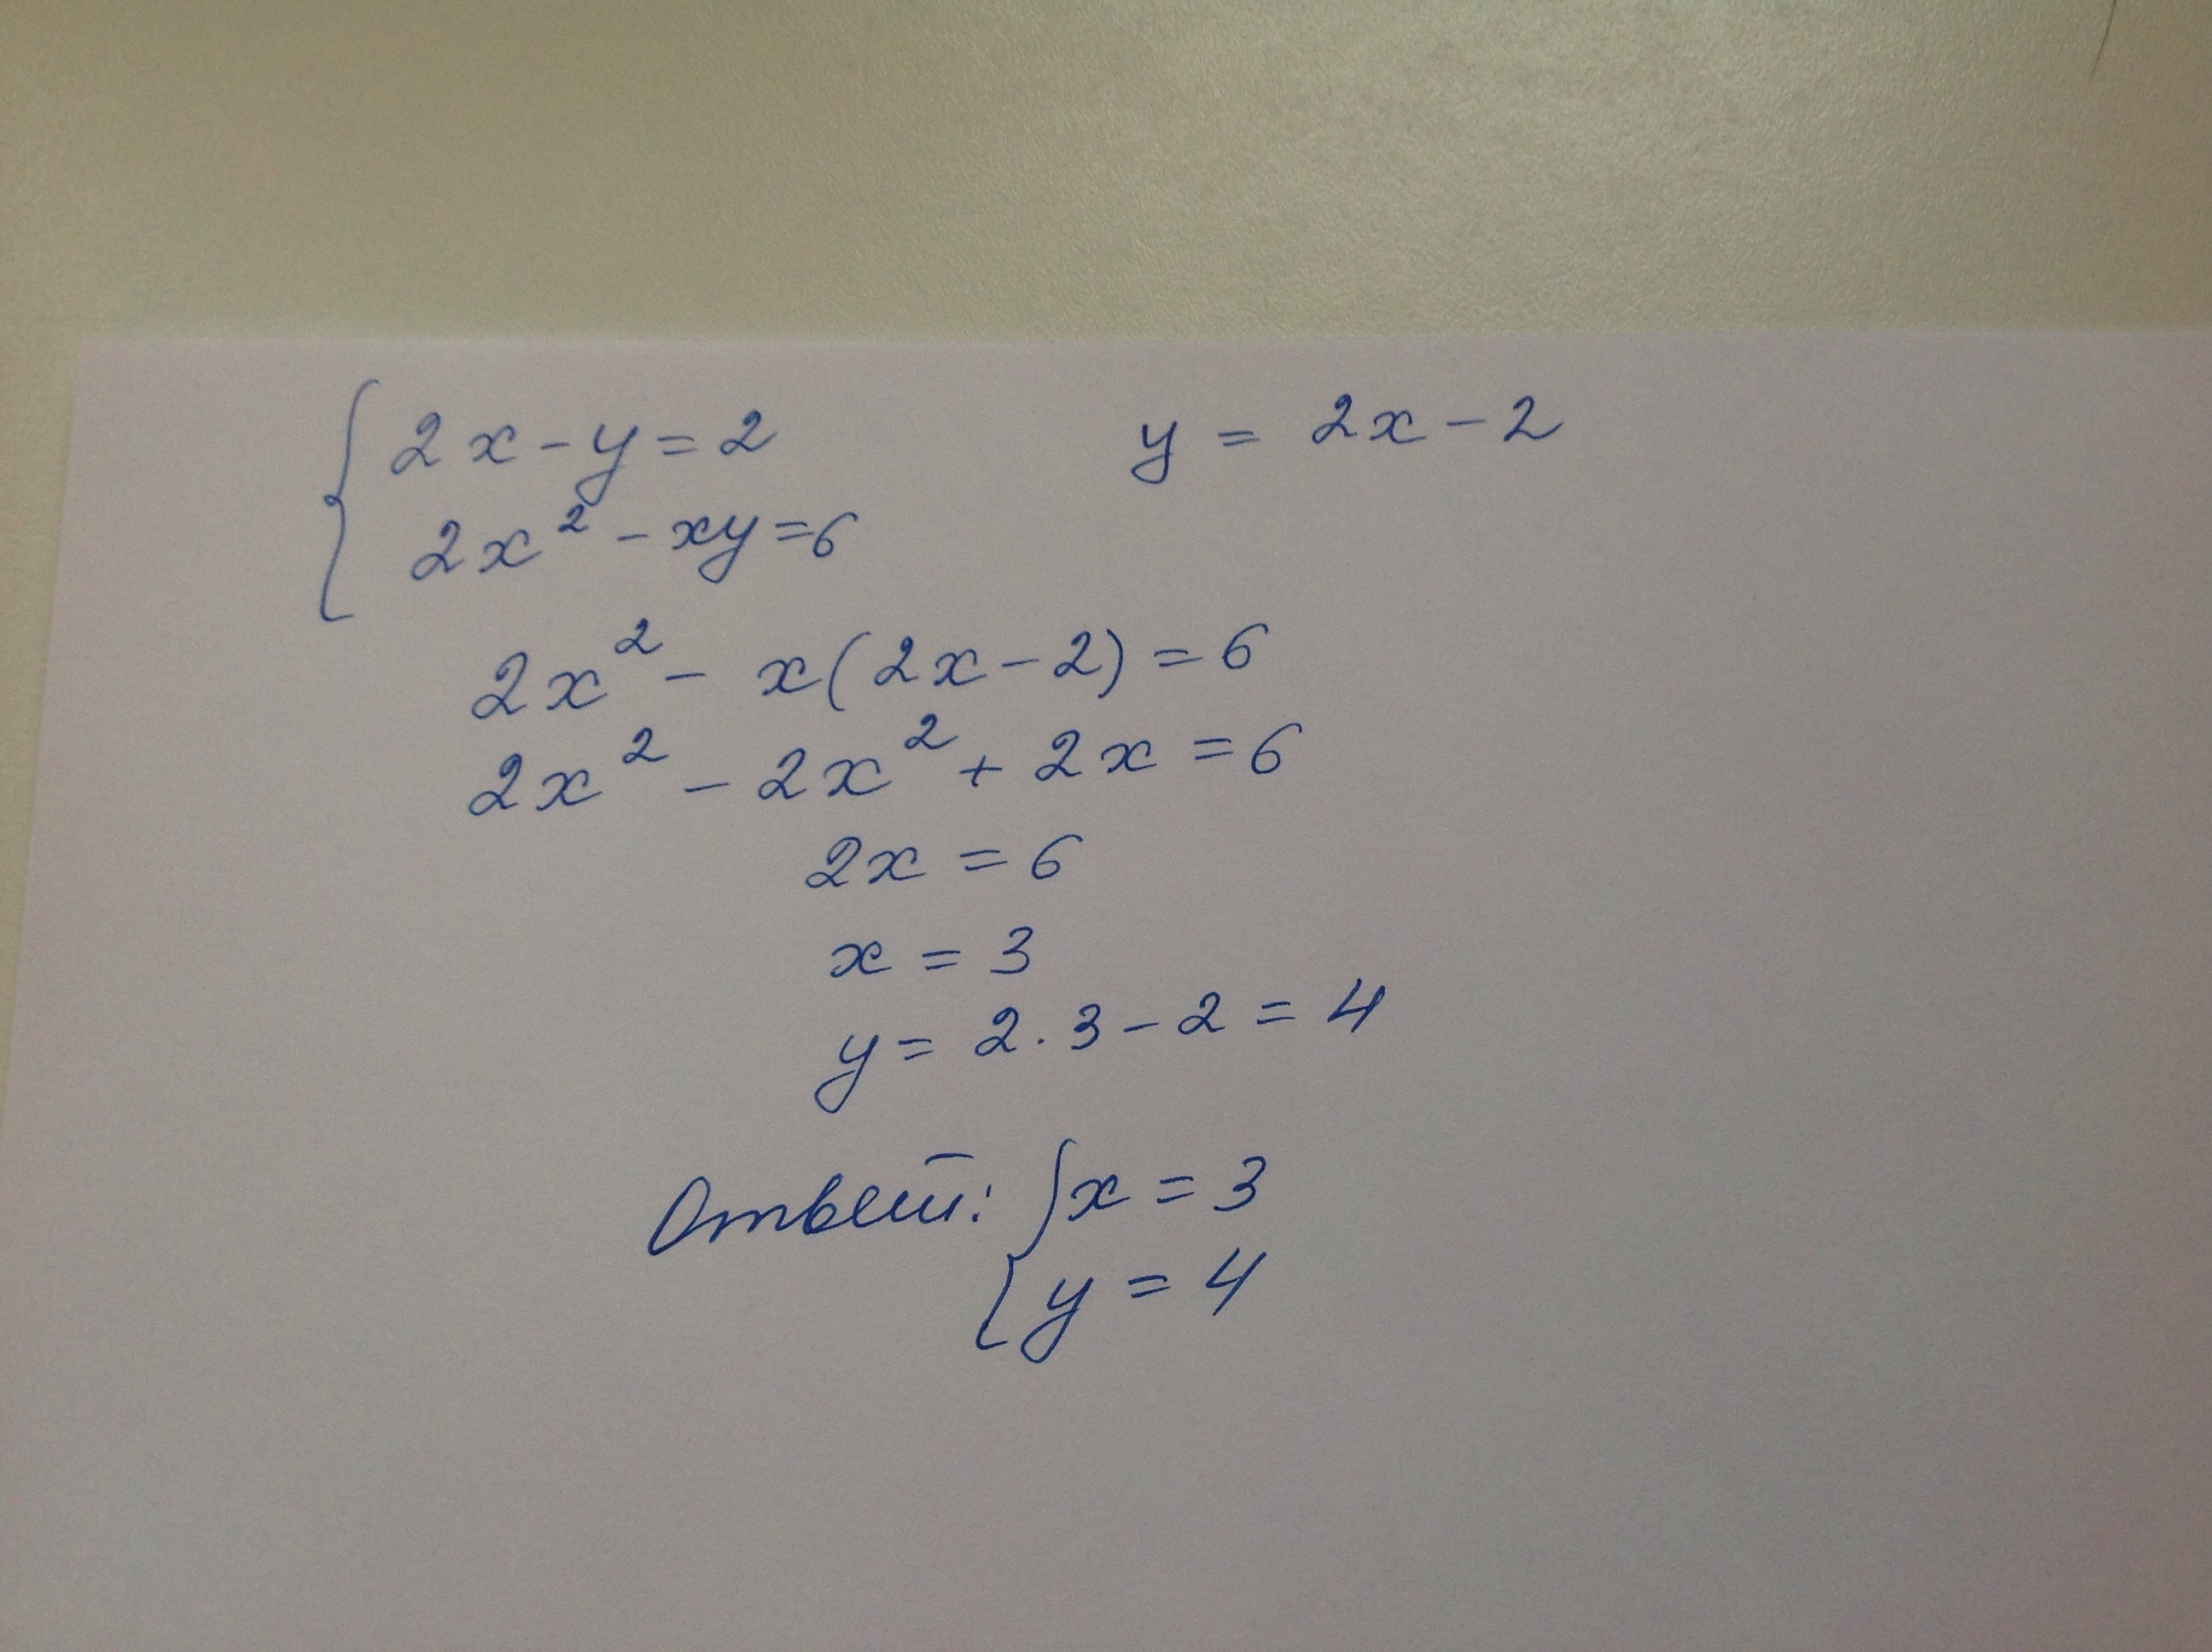 { 2x - y = 2      y = 2x - 2
2x² - xy = 6
2x² - x(2x - 2) = 6
2x² - 2x² + 2x = 6
2x = 6
x = 3
y = 2 · 3 - 2 = 4
Ответ: { x = 3
y = 4